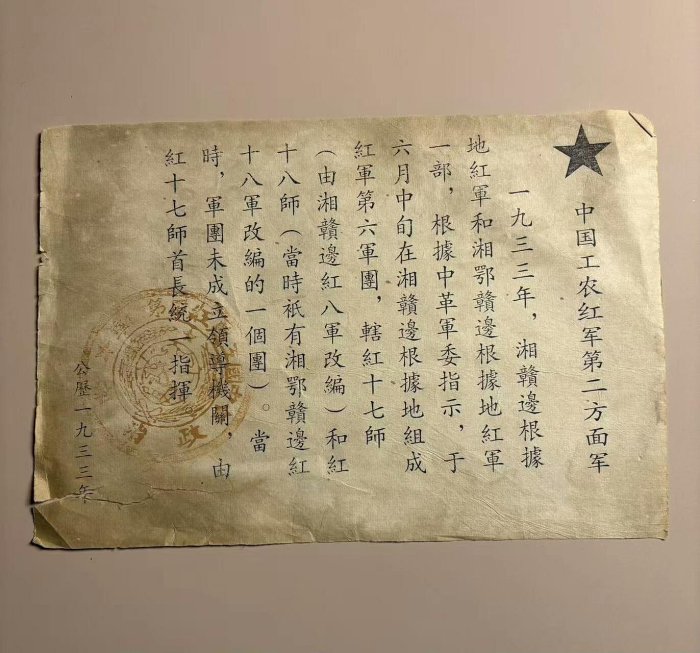 中国工农红军第二方面军
一九三三年，湘贛邊根據
地紅軍和湘鄂贛邊根據地紅軍
一部，根據中革軍委指示，于
六月中旬在湘贛邊根據地組成
紅軍第六軍團，轄紅十七師
（由湘贛邊紅八軍改編）和紅
十八師（當時祇有湘鄂贛邊紅
十八軍改編的一個團）。當
時，軍團未成立領導機關，由
紅十七師首長統一指揮
公歷一九三三年